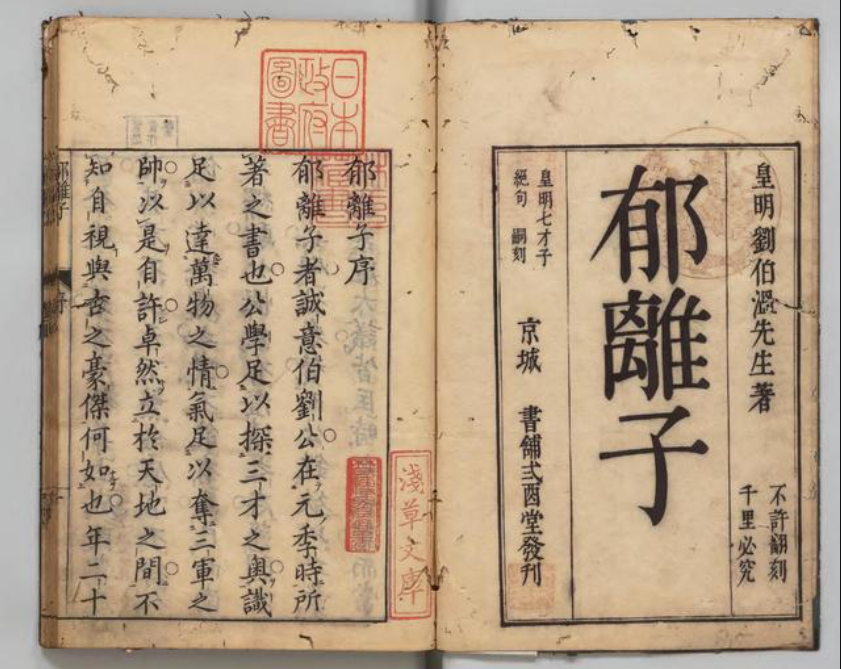 皇明劉伯溫先生著
不許翻刻
千里必究
郁離子
皇明七才子
絶句 嗣刻
京城 書舖弍酉堂發刊
日本
政府
圖書
淺草文庫
郁離子序
郁離子者誠意伯劉公在元季時所
著之書也公學足以探三才之奧識
足以達萬物之情氣足以奪三軍之
帥以是自許卓然立扵天地之間不
知自視與古之豪傑何如也年二十
郁離子 序